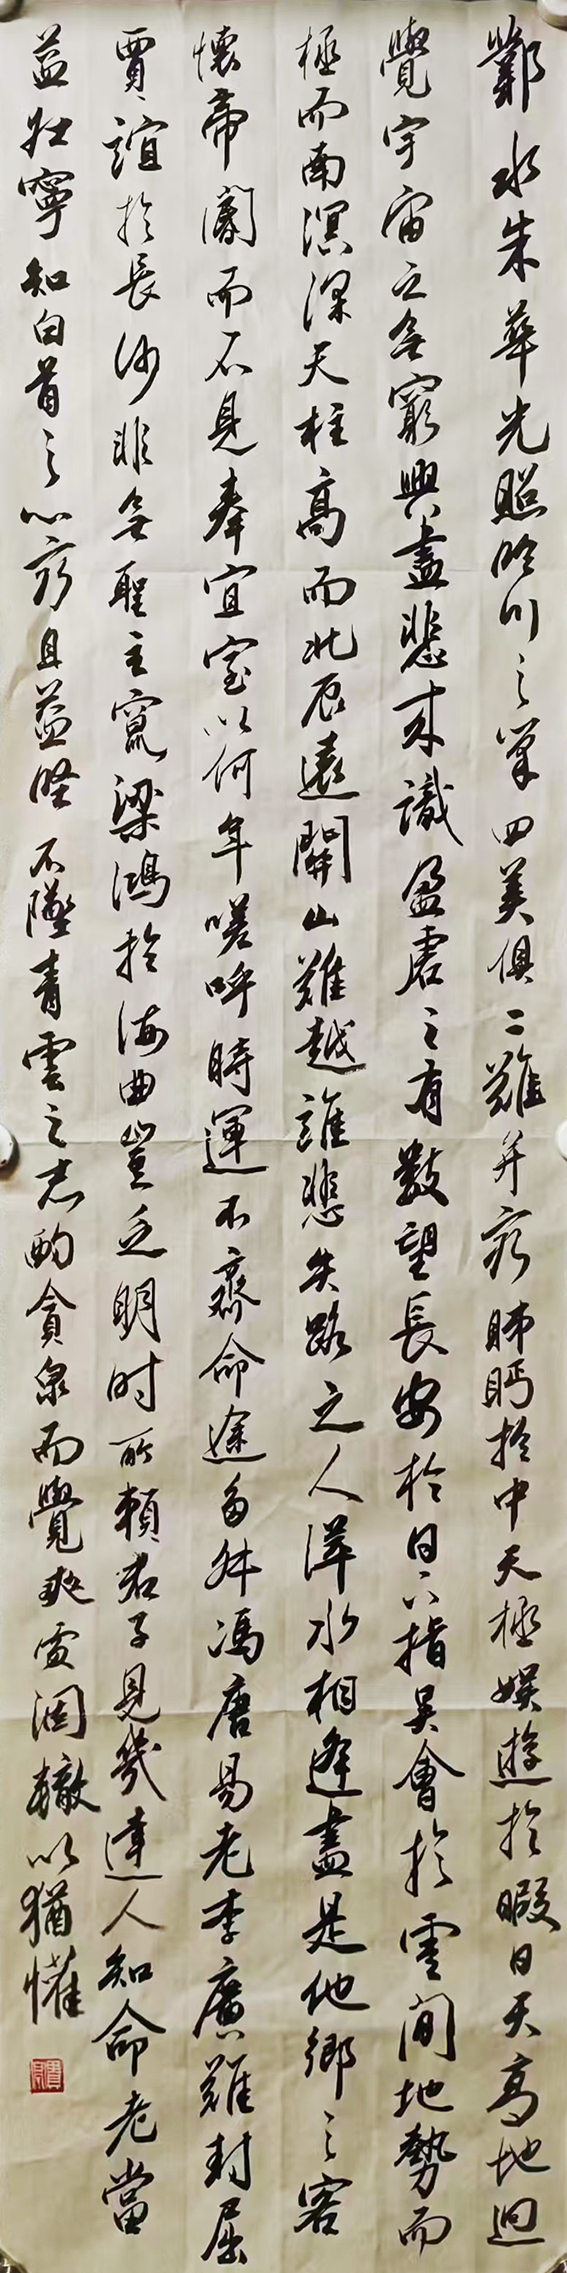 鄴水朱華光照臨川之筆四美俱二難并窮睇眄於中天極娛遊於暇日天高地迥
覺宇宙之無窮興盡悲來識盈虛之有數望長安於日下指吳會於雲間地勢而
極而南溟深天柱高而北辰遠關山難越誰悲失路之人萍水相逢盡是他鄉之客
懷帝閽而不見奉宣室以何年嗟呼時運不齊命途多舛馮唐易老李廣難封屈
賈誼於長沙非無聖主竄梁鴻於海曲豈乏明時所賴君子見幾達人知命老當
益壯寧知白首之心窮且益堅不墜青雲之志酌貪泉而覺爽處涸轍以猶懽